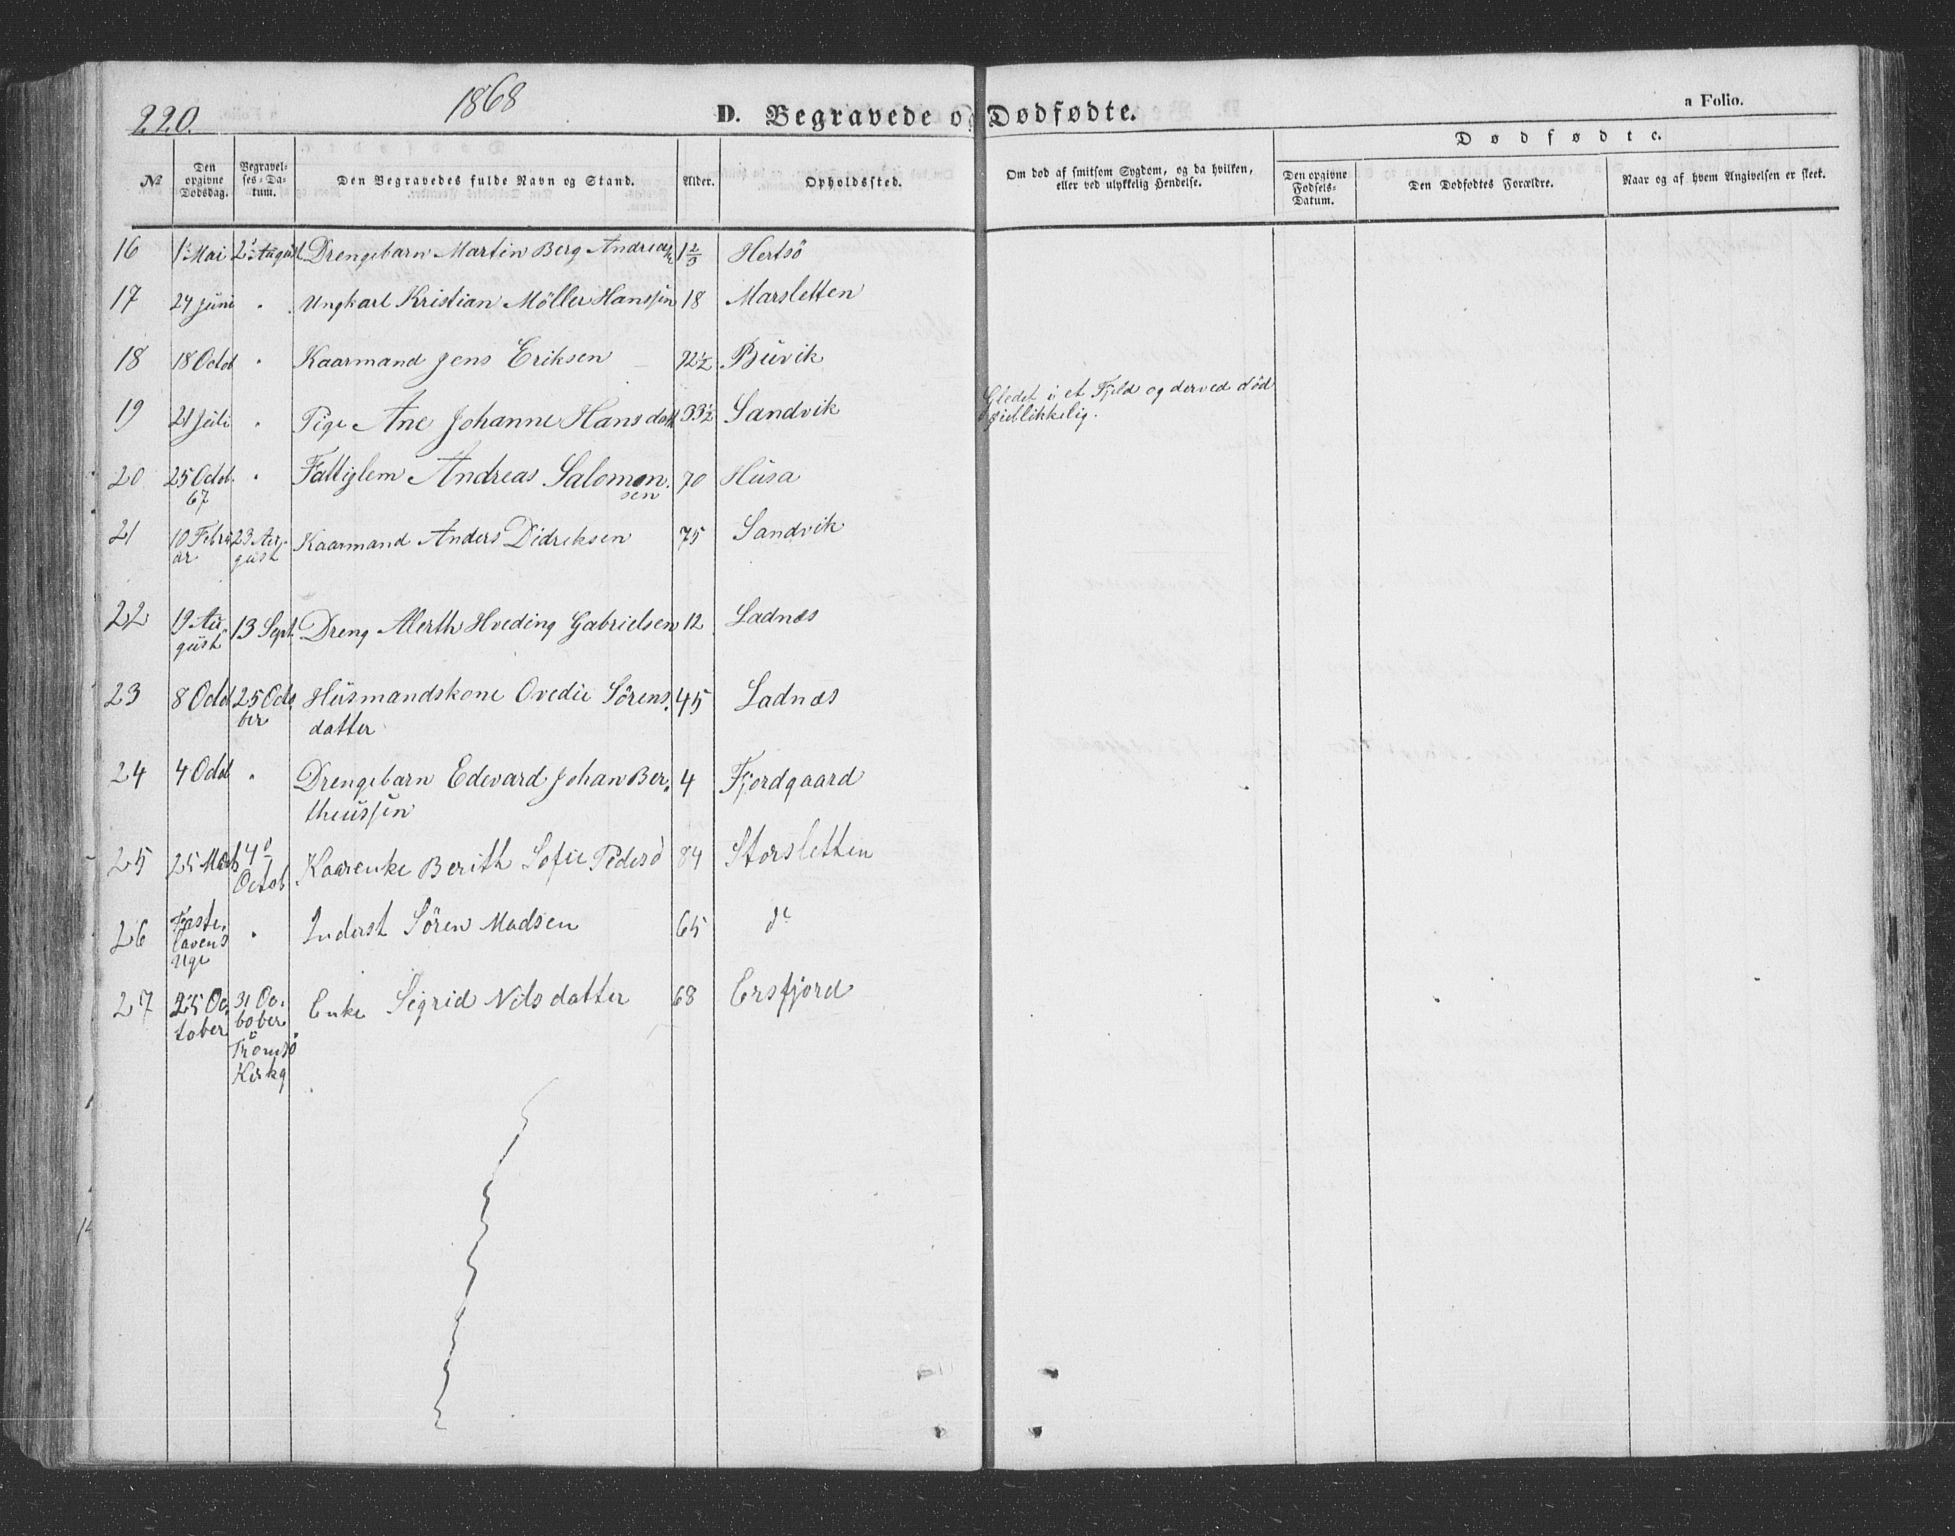 220.
1868
D. Begravede og Dødfødte.
a Folio.
№
Den opgivne Dødsdag.
Begravelses-Datum.
Den Begravedes fulde Navn og Stand.
Alder.
Opholdssted.
Om død af smitsom Sygdom, og da hvilken, eller ved ulykkelig Hendelse.
Dødfødte.
Den opgivne Fødsels-Datum.
Den Dødfødtes Forældre.
Naar og af hvem Angivelsen er skeet.
16 1 Mai 2 August Drengebarn Martin Berg Andreas 1 2/3 Hertsö
17 24 Juni " Ungkarl Kristian Möller Hanssen 18 Marsletten
18 18 Octob " Kaarmand Jens Eriksen 72½ Buvik
19 21 Juli " Pige Ane Johanne Hansdatt 33½ Sandvik Gledet i et Fjeld og derved död
öieblikkelig.
20 25 Octob. " Fattiglem Andreas Salomon 70 Husa
67 sen
21 10 Febru 23 Au- Kaarmand Anders Didreksen 75 Sandvik
ar gust
22 19 Au- 13 Sept. Dreng Alerth Hveding Gabrielsen 12 Ladnæs
gust
23 8 Octob 25 Octo Husmandskone Ovedie Sörens- 45 Ladnæs
ber datter
24 4 Octob " Drengebarn Edevard Johan Ber- 4 Fjordgaard
theussen
25 25 Marts 4 Kaarenke Berith Sofie Peders 84 Storsletten
Octob.
26 Faste- " Inderst Sören Madsen 65 do
lavens
Uge
27 25 Oc- 31 Oc- Enke Sigrid Nilsdatter 68 Ersfjord
tober tober
Tromsö
Kirkg